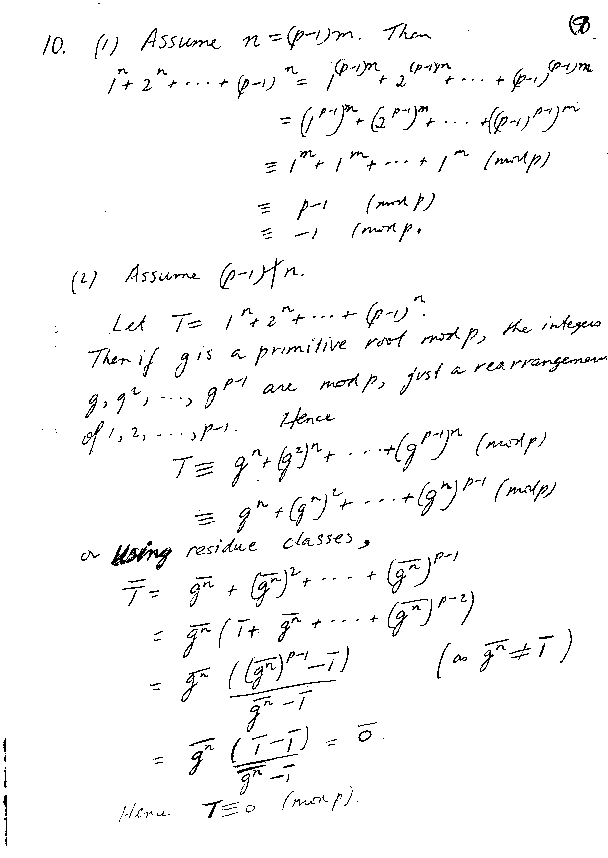 (8)
10. (1) Assume n = (p-1)m. Then
1^n + 2^n + ... + (p-1)^n = 1^{(p-1)m} + 2^{(p-1)m} + ... + (p-1)^{(p-1)m}
= (1^{p-1})^m + (2^{p-1})^m + ... + ((p-1)^{p-1})^m
≡ 1^m + 1^m + ... + 1^m (mod p)
≡ p-1 (mod p)
≡ -1 (mod p.
(2) Assume (p-1) ∤ n.
Let T = 1^n + 2^n + ... + (p-1)^n.
Then if g is a primitive root mod p, the integers
g, g^2, ..., g^{p-1} are mod p, just a rearrangement
of 1, 2, ..., p-1. Hence
T ≡ g^n + (g^2)^n + ... + (g^{p-1})^n (mod p)
≡ g^n + (g^n)^2 + ... + (g^n)^{p-1} (mod p)
or Using residue classes,
T̄ = \overline{g^n} + (\overline{g^n})^2 + ... + (\overline{g^n})^{p-1}
= \overline{g^n} (1̄ + \overline{g^n} + ... + (\overline{g^n})^{p-2})
= \overline{g^n} ((\overline{g^n})^{p-1} - 1̄) / (\overline{g^n} - 1̄) (as \overline{g^n} ≠ 1̄)
= \overline{g^n} (1̄ - 1̄) / (\overline{g^n} - 1̄) = 0̄.
Hence T ≡ 0 (mod p).